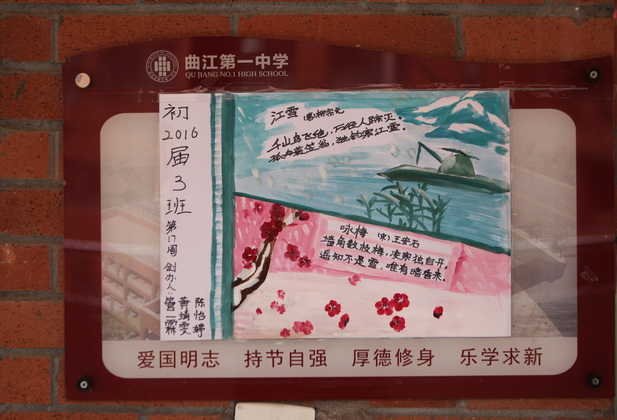 曲江第一中学
QU JIANG NO.1 HIGH SCHOOL
初2016届3班
第17周 创办人
陈怡婷
黄婧雯
管一霖
江雪 (唐)柳宗元
千山鸟飞绝，万径人踪灭。
孤舟蓑笠翁，独钓寒江雪。
咏梅 (宋)王安石
墙角数枝梅，凌寒独自开，
遥知不是雪，唯有暗香来。
爱国明志 持节自强 厚德修身 乐学求新